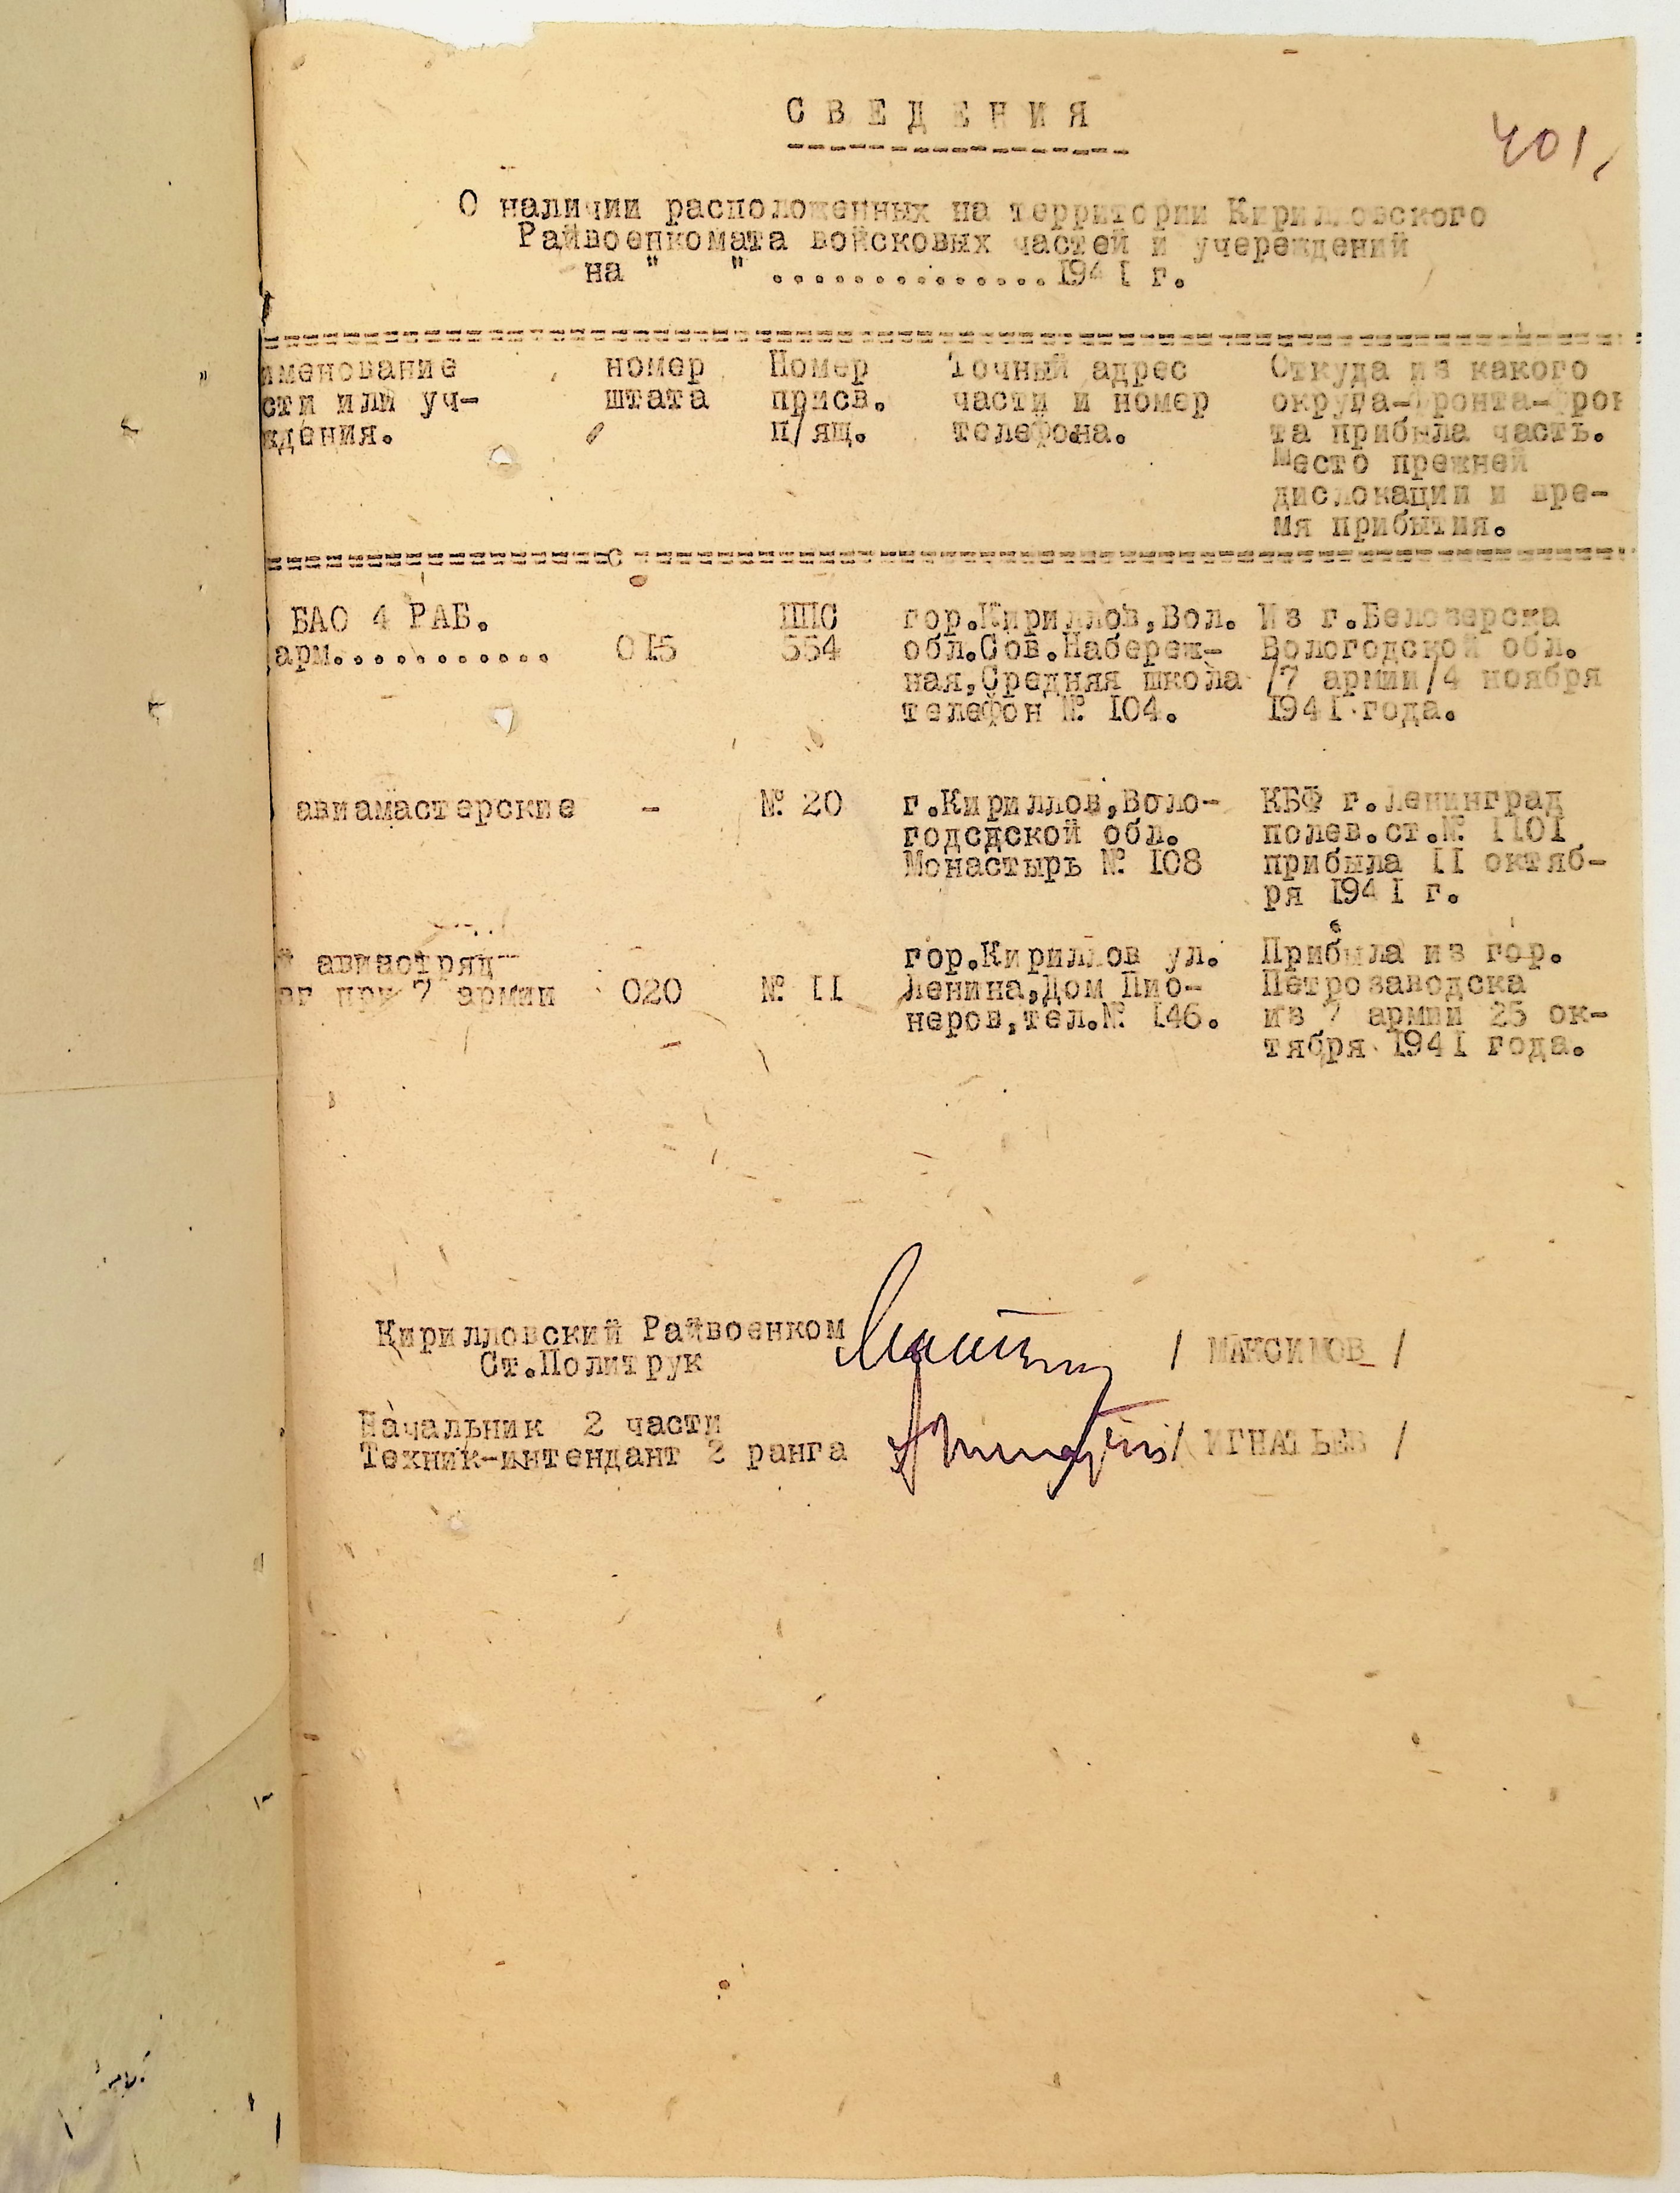 СВЕДЕНИЯ
401.
О наличии расположенных на территории Кирилловского
Райвоенкомата войсковых частей и учереждений
на "    " ...............1941 г.
именование номер Номер Точный адрес Откуда из какого
сти или уч- штата присв. части и номер округа-фронта-фрон
ждения. п/ящ. телефона. та прибыла часть.
Место прежней
дислокации и вре-
мя прибытия.
БАО 4 РАБ. ППС гор.Кириллов,Вол. Из г.Белозерска
арм............ 015 554 обл.Сов.Набереж- Вологодской обл.
ная,Средняя школа /7 армии/4 ноября
телефон № 104. 1941 года.
авиамастерские - № 20 г.Кириллов,Воло- КБФ г.Ленинград
годсдской обл. полев.ст.№ 1101
Монастырь № 108 прибыла 11 октяб-
ря 1941 г.
й авиаотряд гор.Кириллов ул. Прибыла из гор.
при 7 армии 020 № 11 Ленина,Дом Пио- Петрозаводска
неров,тел.№ 146. из 7 армии 25 ок-
тября 1941 года.
Кирилловский Райвоенком / МАКСИМОВ /
Ст.Политрук
Начальник 2 части
Техник-интендант 2 ранга / ИГНАТЬЕВ /